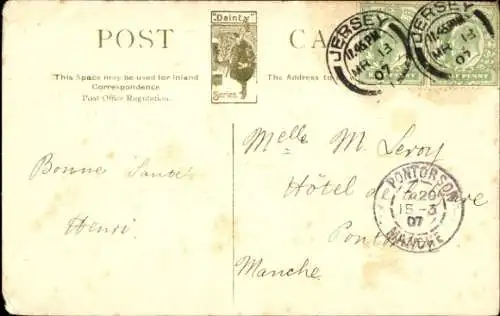 POST CA
"Dainty"
Series
This Space may be used for Inland
Correspondence
Post Office Regulation.
The Address to
JERSEY
11.45PM
MR 13
07
JERSEY
11.45PM
MR 13
07
HALF PENNY
Bonne Santé
Henri
Melle M. Leroy
Hôtel de la Gare
Pontorson
Manche
PONTORSON
20
15-3
07
MANCHE